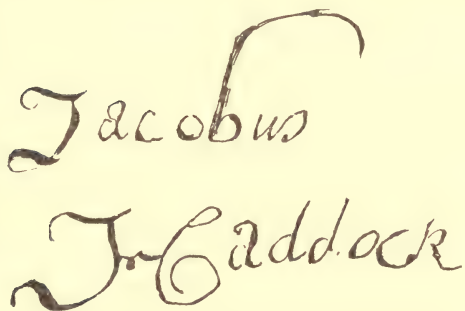 Jacobus
Jr Caddock